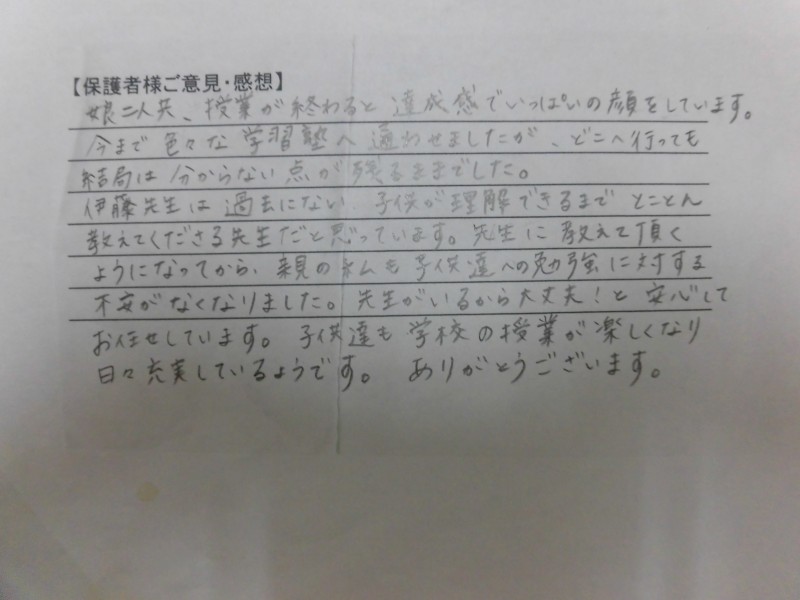 【保護者様ご意見・感想】
娘二人共、授業が終わると達成感でいっぱいの顔をしています。
今まで色々な学習塾へ通わせましたが、どこへ行っても
結局は分からない点が残るままでした。
伊藤先生は過去にない 子供が理解できるまでとことん
教えてくださる先生だと思っています。先生に教えて頂く
ようになってから、親の私も子供達への勉強に対する
不安がなくなりました。先生がいるから大丈夫！と安心して
お任せしています。子供達も学校の授業が楽しくなり
日々充実しているようです。 ありがとうございます。